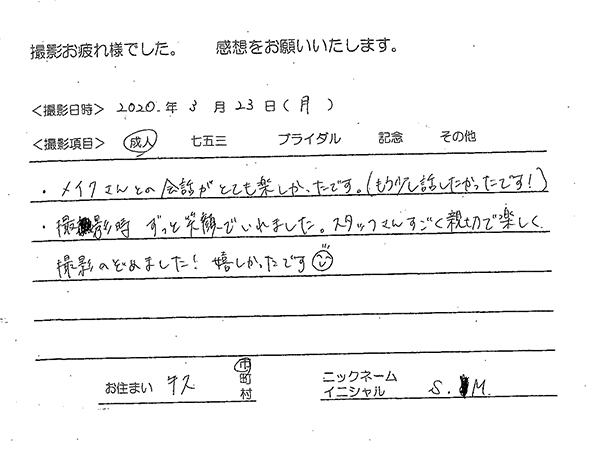 撮影お疲れ様でした。 感想をお願いいたします。
<撮影日時> 2020.年 3 月 23 日(月)
<撮影項目> 成人 七五三 ブライダル 記念 その他
・メイクさんとの会話がとても楽しかったです。(もう少し話したかったです!)
・撮影時 ずっと笑顔でいれました。スタッフさんすごく親切で楽しく
撮影のぞめました! 嬉しかったです
お住まい 市町村
ニックネーム
イニシャル S. M.